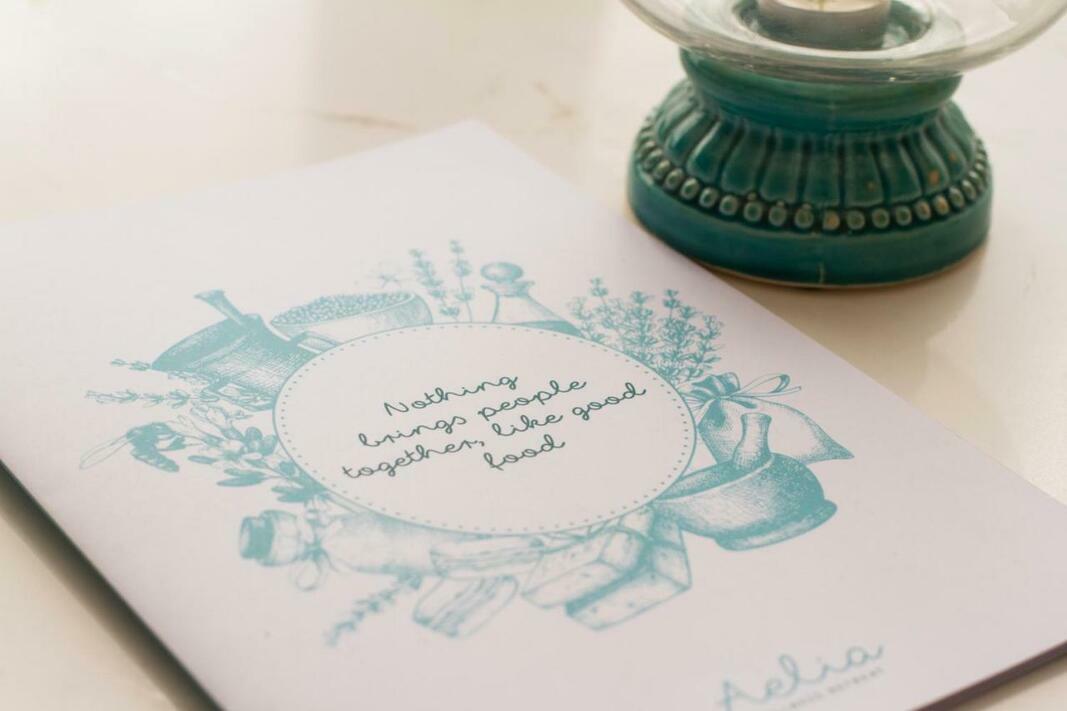 Nothing
brings people
together, like good
food
Aelia
RETREAT